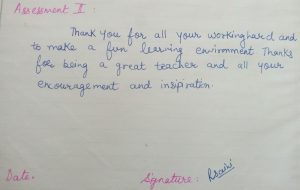 Assessment II :
Thank you for all your workinghard and
to make a fun learning environment Thanks
for being a great teacher and all your
encouragement and inspiration.
Date. Signature: